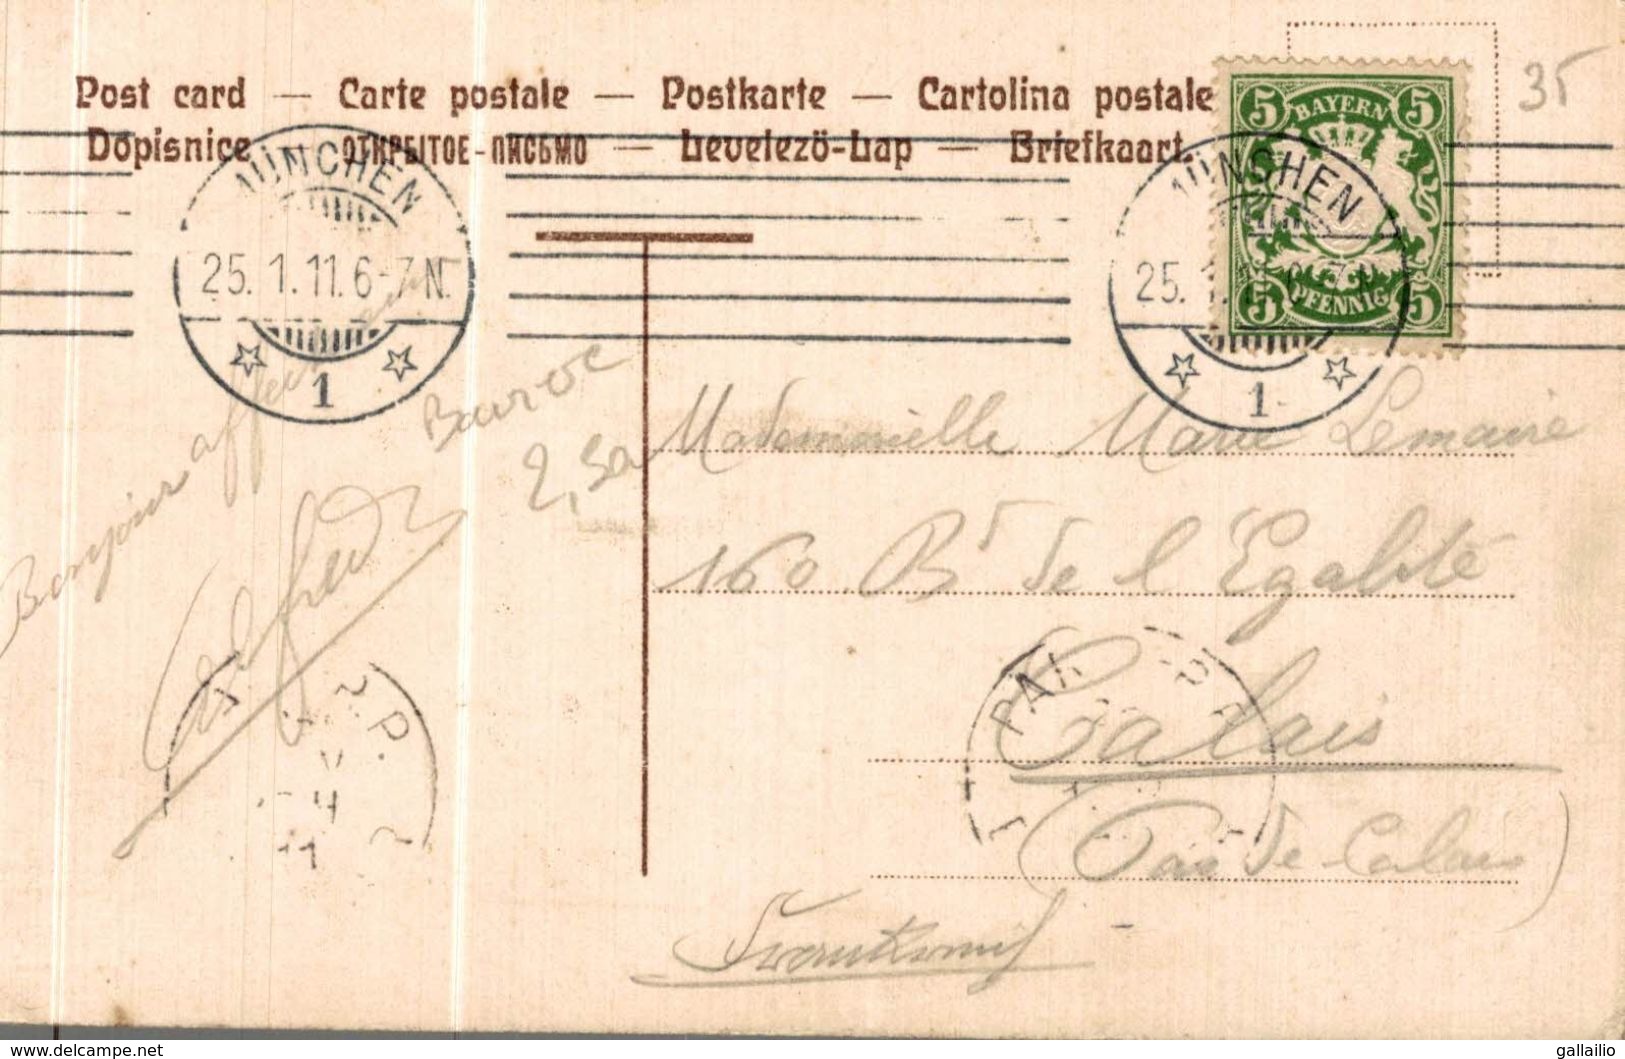 Post card — Carte postale — Postkarte — Cartolina postale
Dopisnice — ОТКРЫТОЕ-ПИСЬМО — Levelezö-Lap — Briefkaart.
35
BAYERN
5 5
5 5
PFENNIG
MÜNCHEN
25.1.11.6-7N.
1
MÜNCHEN
25.1.
1
Bonjour affectueux
Alfred
2,50
Mademoiselle Marie Lemaire
160 Bd de l'Egalité
Calais
(Pas de Calais)
Frankreich
www.delcampe.net
gallailio